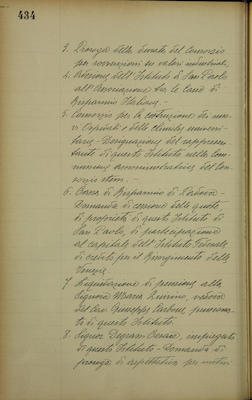 434
3. Proroga della durata del Consorzio
per sovvenzioni su valori industriali.
4. Adesione dell'Istituto di San Paolo
all'Associazione tra le Casse di
Risparmio Italiane. -
5. Consorzio per la costruzione dei nuo-
vi Ospedali e delle cliniche universi-
tarie - Designazione del rappresen-
tante di questo Istituto nella Com-
missione amministratrice del Con-
sorzio stesso. -
6. Cassa di Risparmio di Padova -
Domanda di cessione della quota
di proprietà di questo Istituto di
San Paolo, di partecipazione
al capitale dell'Istituto Federale
di credito per il Risorgimento delle
Venezie
7. Liquidazione di pensione alla
Signora Maria vedova
del Cav. Giuseppe
di questo Istituto.
8. Signor impiegato
di questo Istituto - Domanda di
proroga di aspettativa per motivi